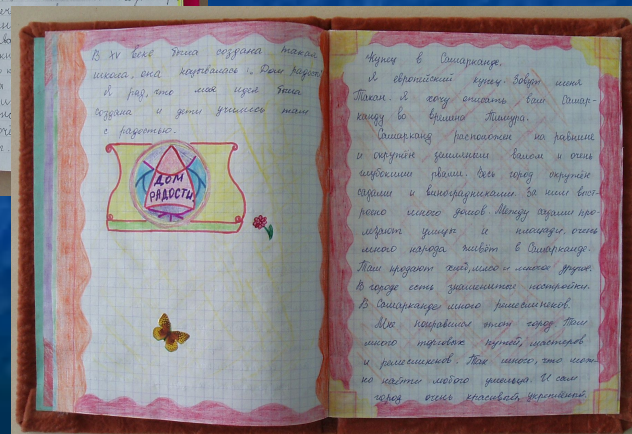 В XV веке была создана такая
школа, она называлась „Дом радости
Я рад, что моя идея была
создана и дети учились там
с радостью.
ДОМ
РАДОСТИ
Купец в Самарканде.
Я европейский купец. Зовут меня
Такан. Я хочу описать вам Самар-
канду во времена Тимура.
Самарканд расположен на равнине
и окружён земляным валом и очень
глубокими рвами. Весь город окружён
садами и виноградниками. За ним выст-
роено много домов. Между садами про-
легают улицы и площади, очень
много народа живёт в Самарканде.
Там продают хлеб, мясо и многое другое.
В городе есть знаменитые постройки.
В Самарканде много ремеслиников.
Мне понравился этот город. Там
много торговых путей, мастеров
и ремеслиников. Так много, что мож-
но найти любого умельца. И сам
город очень красивый, укреплённый